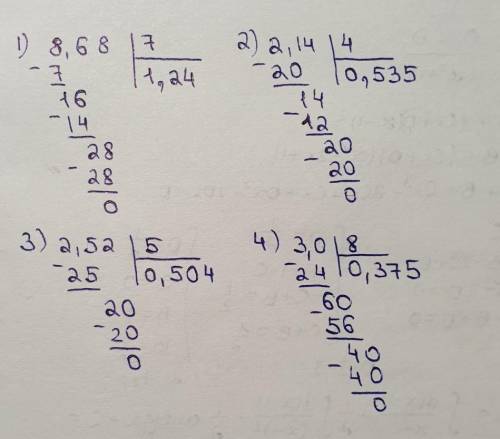 1) 8,68 | 7
- 7 | 1,24
16
- 14
28
- 28
0
2) 2,14 | 4
- 20 | 0,535
14
- 12
20
- 20
0
3) 2,52 | 5
- 25 | 0,504
20
- 20
0
4) 3,0 | 8
- 24 | 0,375
60
- 56
40
- 40
0